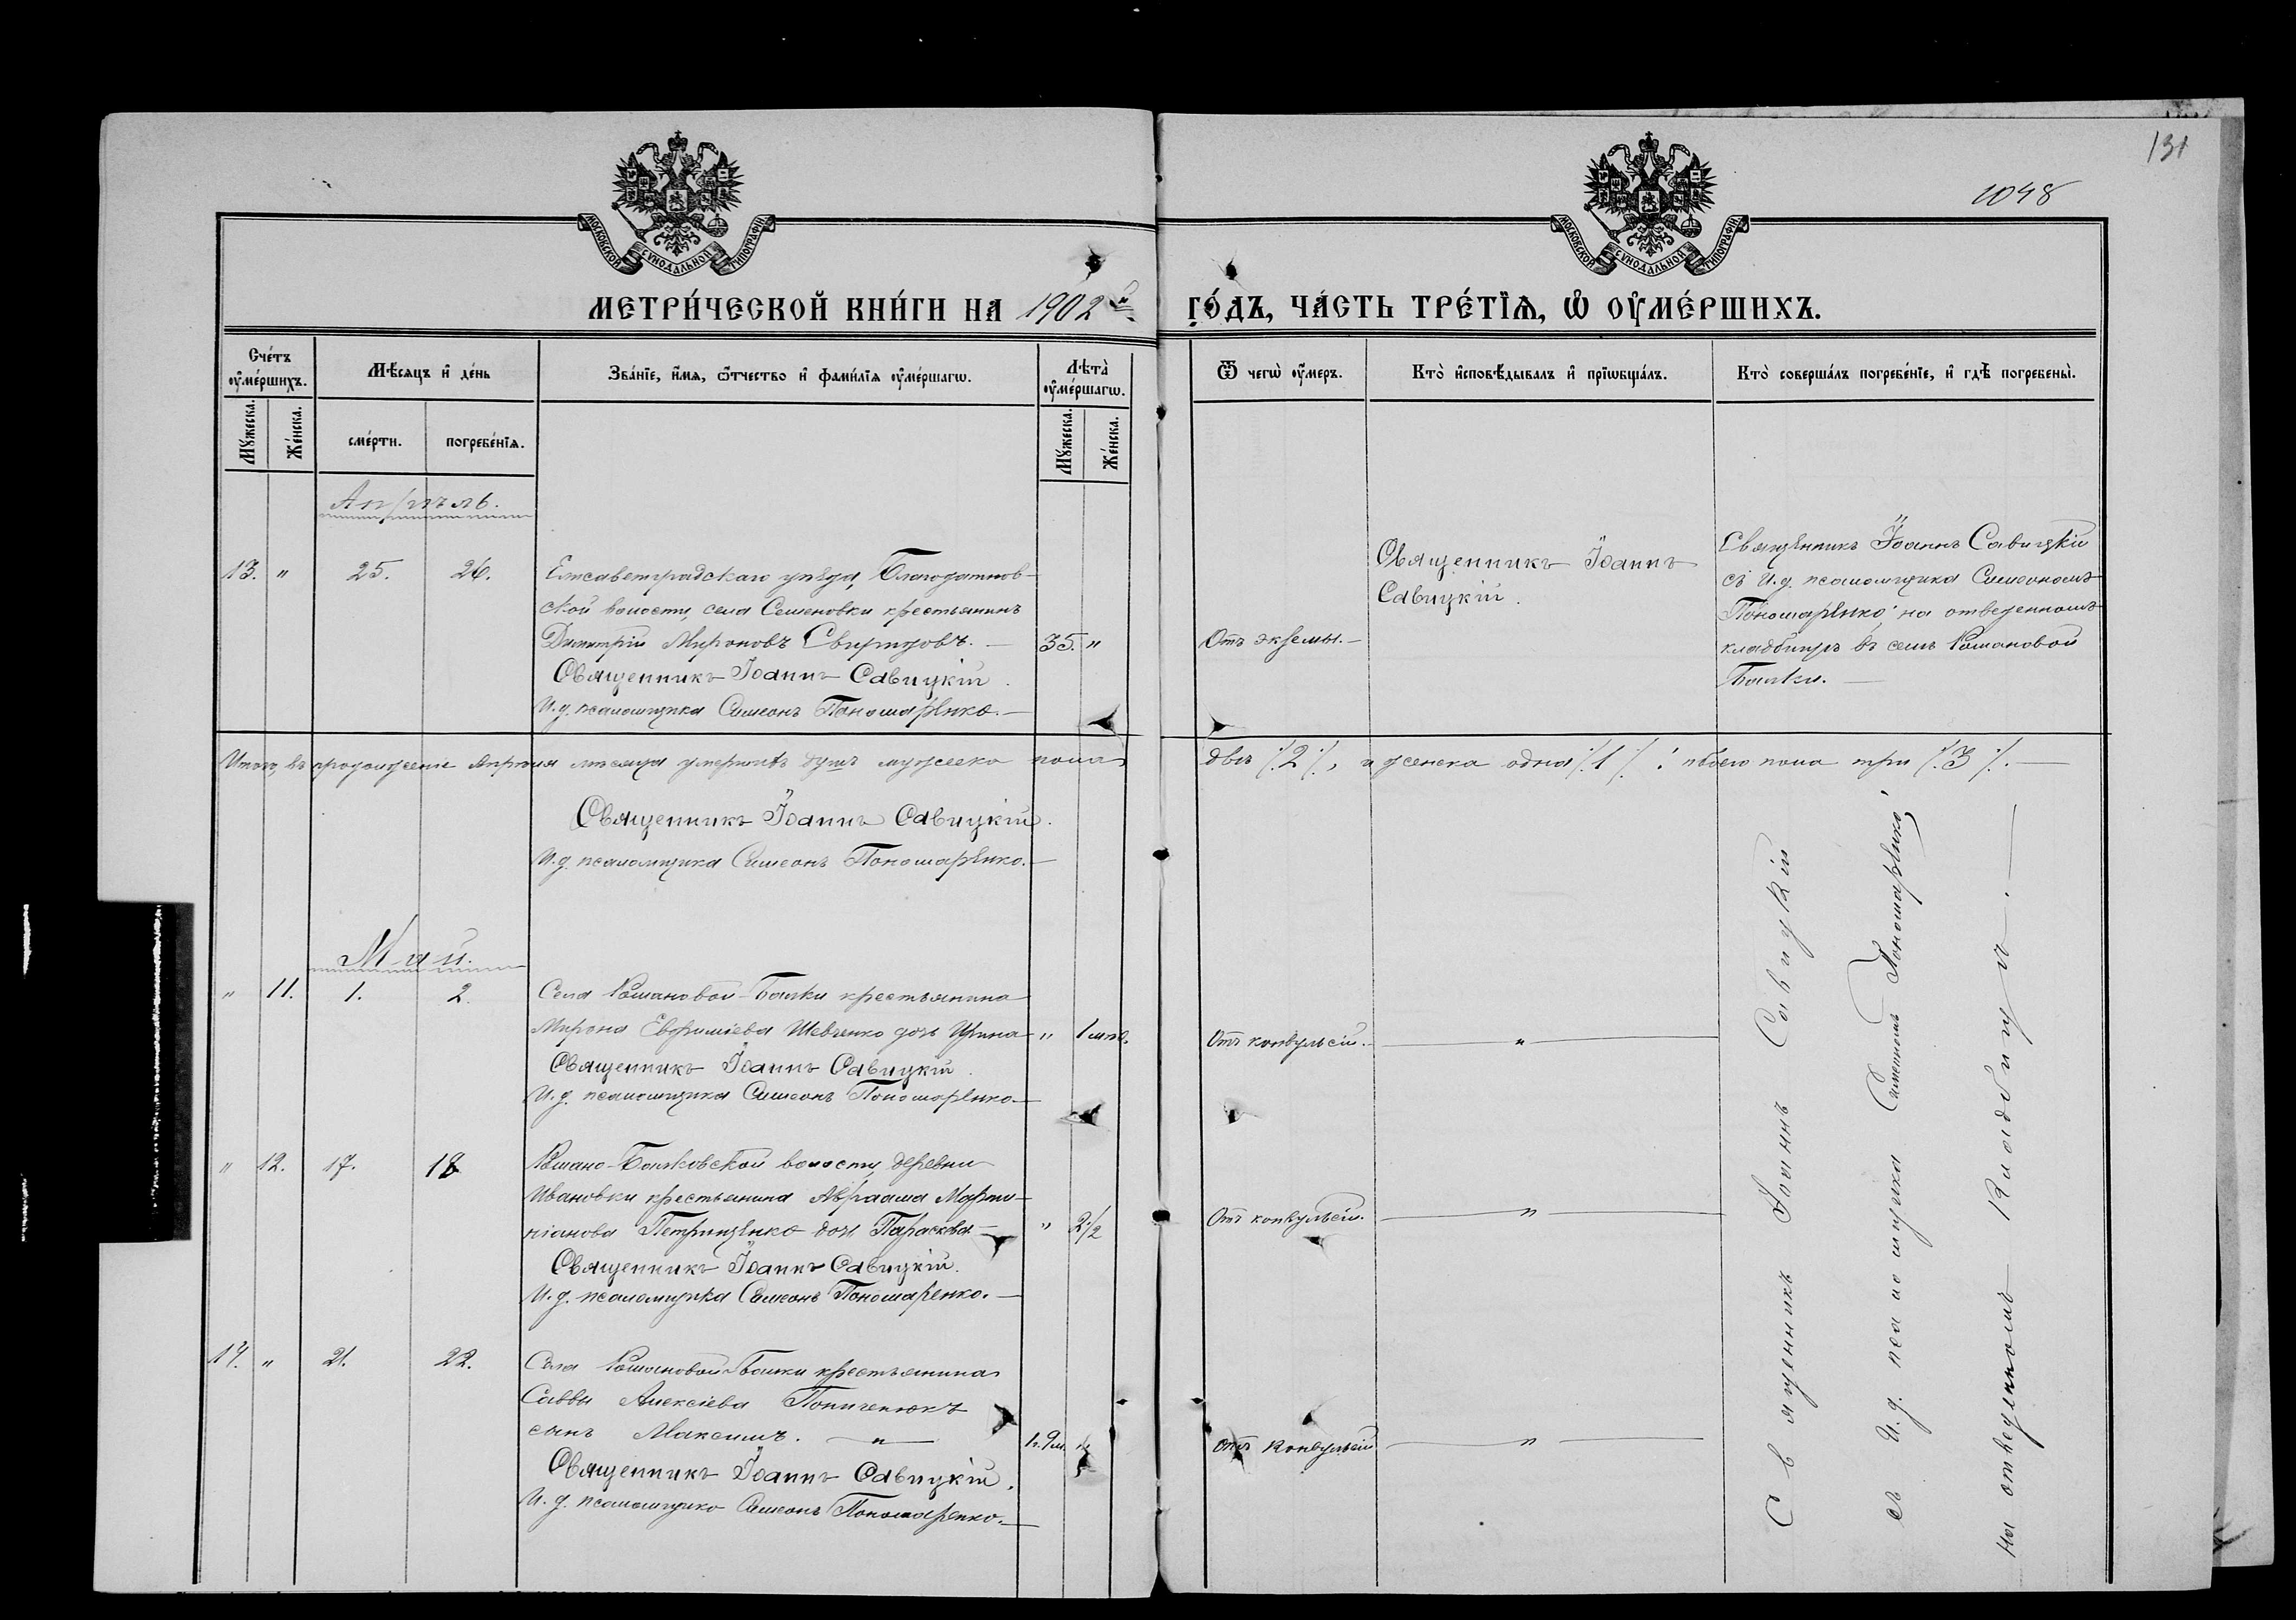 131
1048
МОСКОВСКОЙ СѴНОДАЛЬНОЙ ТИПОГРАФІИ
МОСКОВСКОЙ СѴНОДАЛЬНОЙ ТИПОГРАФІИ
МЕТРИ́ЧЕСКОЙ КНИ́ГИ НА 1902й
ГО́ДЪ, ЧА́СТЬ ТРЕ́ТЇѦ, Ѡ҆ ОУ҆МЕ́РШИХЪ.
Сче́тъ оу҆ме́ршихъ.
Мꙋ́жеска.
Же́нска.
Мѣ́сяцъ и҆ де́нь
сме́рти.
погребе́нїѧ.
Зва́нїе, и҆́мѧ, ѻ҆́тчество и҆ фами́лїѧ оу҆ме́ршагѡ.
Лѣ́та оу҆ме́ршагѡ.
Мꙋ́жеска.
Же́нска.
Ѿ чегѡ̀ оу҆́меръ.
Кто̀ и҆сповѣ́дывалъ и҆ прїѡбща́лъ.
Кто̀ соверша́лъ погребе́нїе, и҆ гдѣ̀ погребены̀.
Апрѣль.
13. " 25. 26.
Елисаветградскаго уѣзда, Благодатнов-
ской волости, села Семеновки крестьянинъ
Димитрій Мироновъ Свиридовъ. — 35. "
Священникъ Іоаннъ Савицкій.
И. д. псаломщика Симеонъ Пономаренко. —
Отъ экземы. —
Священникъ Іоаннъ
Савицкій.
Священникъ Іоаннъ Савицкій
съ И. д. псаломщика Симеономъ
Пономаренко; на отведенномъ
кладбищѣ въ селѣ Романовой
Балки. —
Итого, въ продолженіе Апрѣля мѣсяца умершихъ душъ мужеска пола двѣ /:2:/, а женска одна /:1:/: обоего пола три /:3:/. —
Священникъ Іоаннъ Савицкій.
И. д. псаломщика Симеонъ Пономаренко. —
Май.
" 11. 1. 2.
Села Романовой-Балки крестьянина
Мирона Евфиміева Шевченко дочь Ирина " 1 мѣс.
Священникъ Іоаннъ Савицкій.
И. д. псаломщика Симеонъ Пономаренко —
Отъ конвульсій. — " —
" 12. 17. 18
Романо-Балковской волости, деревни
Ивановки крестьянина Авраама Марти-
ніанова Петрищенко дочь Параскева — " 2 1/2
Священникъ Іоаннъ Савицкій.
И. д. псаломщика Симеонъ Пономаренко. —
Отъ конвульсій. — " —
14. " 21. 22.
Села Романовой-Балки крестьянина
Саввы Алексіева
сынъ Максимъ. — " — 1 г. 9 м. "
Священникъ Іоаннъ Савицкій.
И. д. псаломщика Симеонъ Пономаренко. —
Отъ конвульсій — " —
Священникъ Іоаннъ Савицкій
съ И. д. псаломщика Симеономъ Пономаренко,
на отведенномъ кладбищѣ. —